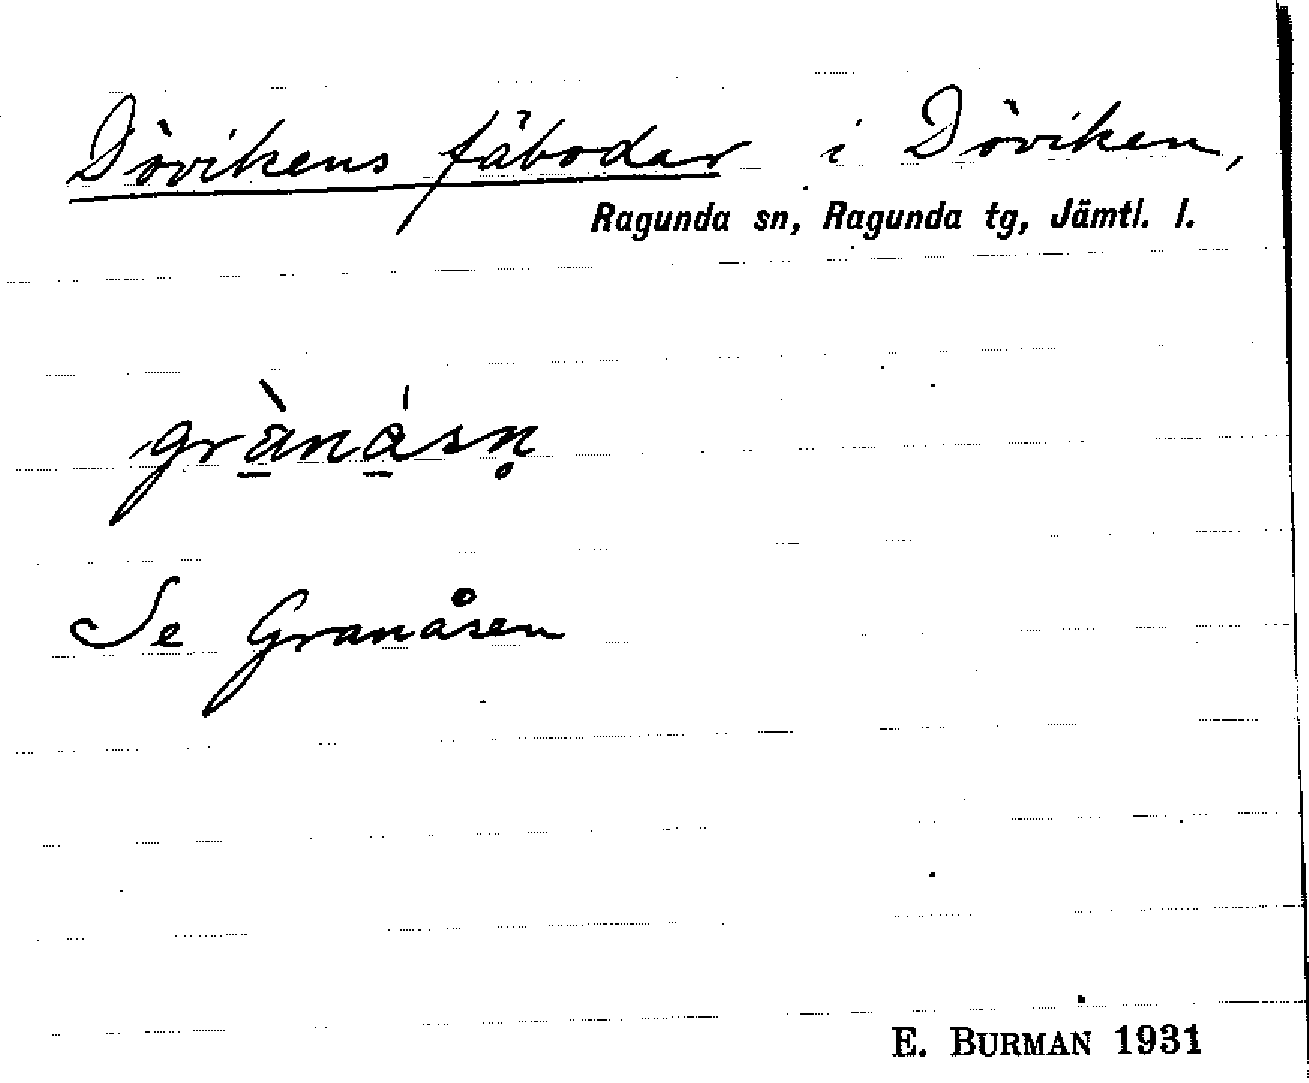 Dövikens fäbodar i Döviken,
Ragunda sn, Ragunda tg, Jämtl. l.
grànásn̥
Se Granåsen
E. BURMAN 1931